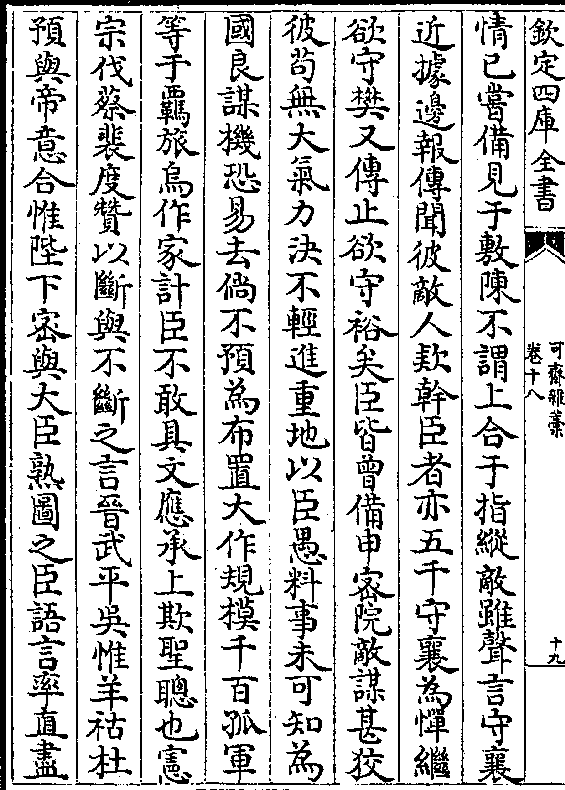 欽定四庫全書
可齋雜藁
卷十八
十九
情已嘗備見于敷陳不謂上合于指縱敵雖聲言守襄
近據邊報傳聞彼敵人欵幹臣者亦五千守襄為憚繼
欲守樊又傳止欲守裕矣臣皆曾備申宻院敵謀甚狡
彼茍無大氣力決不輕進重地以臣愚料事未可知為
國良謀機恐易去倘不預為布置大作規模千百孤軍
等于羈旅烏作家計臣不敢具文應承上欺聖聰也憲
宗伐蔡裴度贊以斷與不斷之言晉武平吳惟羊祜杜
預與帝意合惟陛下宻與大臣熟圖之臣語言率直盡